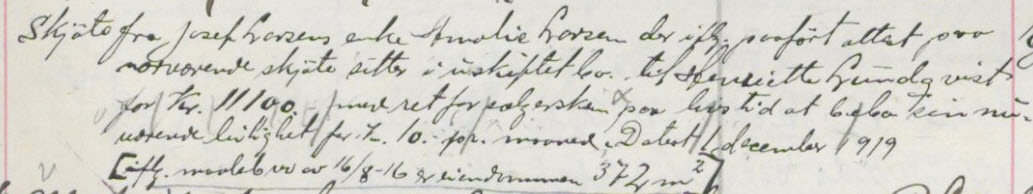 Skjöte fra Josef Larsens enke Amalie Larsen der iflg. paaført attest paa
nærværende skjöte sitter i uskiftet bo. til Henriette Lundqvist
for Kr. 11100.- med ret for sælgersken paa livstid at bebo sin nu-
værende leilighet for Kr. 10.- for. maaned. Datert 1 december 1919
[iflg. maalebrev av 16/8-16 er eiendommen 372 m²]